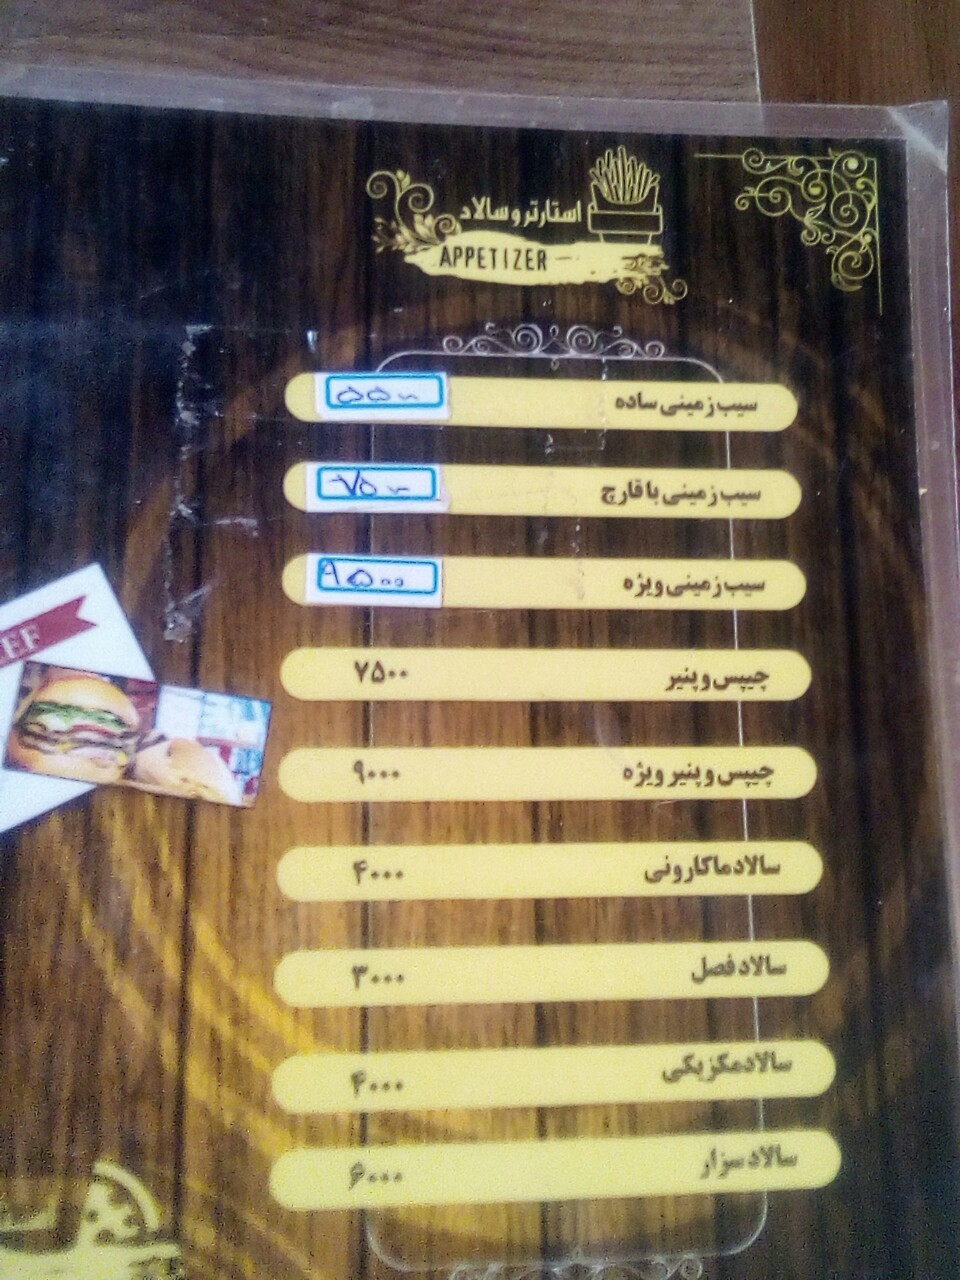 استارتر و سالاد
APPETIZER
سیب زمینی ساده ۵۵۰۰
سیب زمینی با قارچ ۷۵۰۰
سیب زمینی ویژه ۹۵۰۰
چیپس و پنیر ۷۵۰۰
چیپس و پنیر ویژه ۹۰۰۰
سالاد ماکارونی ۴۰۰۰
سالاد فصل ۳۰۰۰
سالاد مکزیکی ۴۰۰۰
سالاد سزار ۶۰۰۰